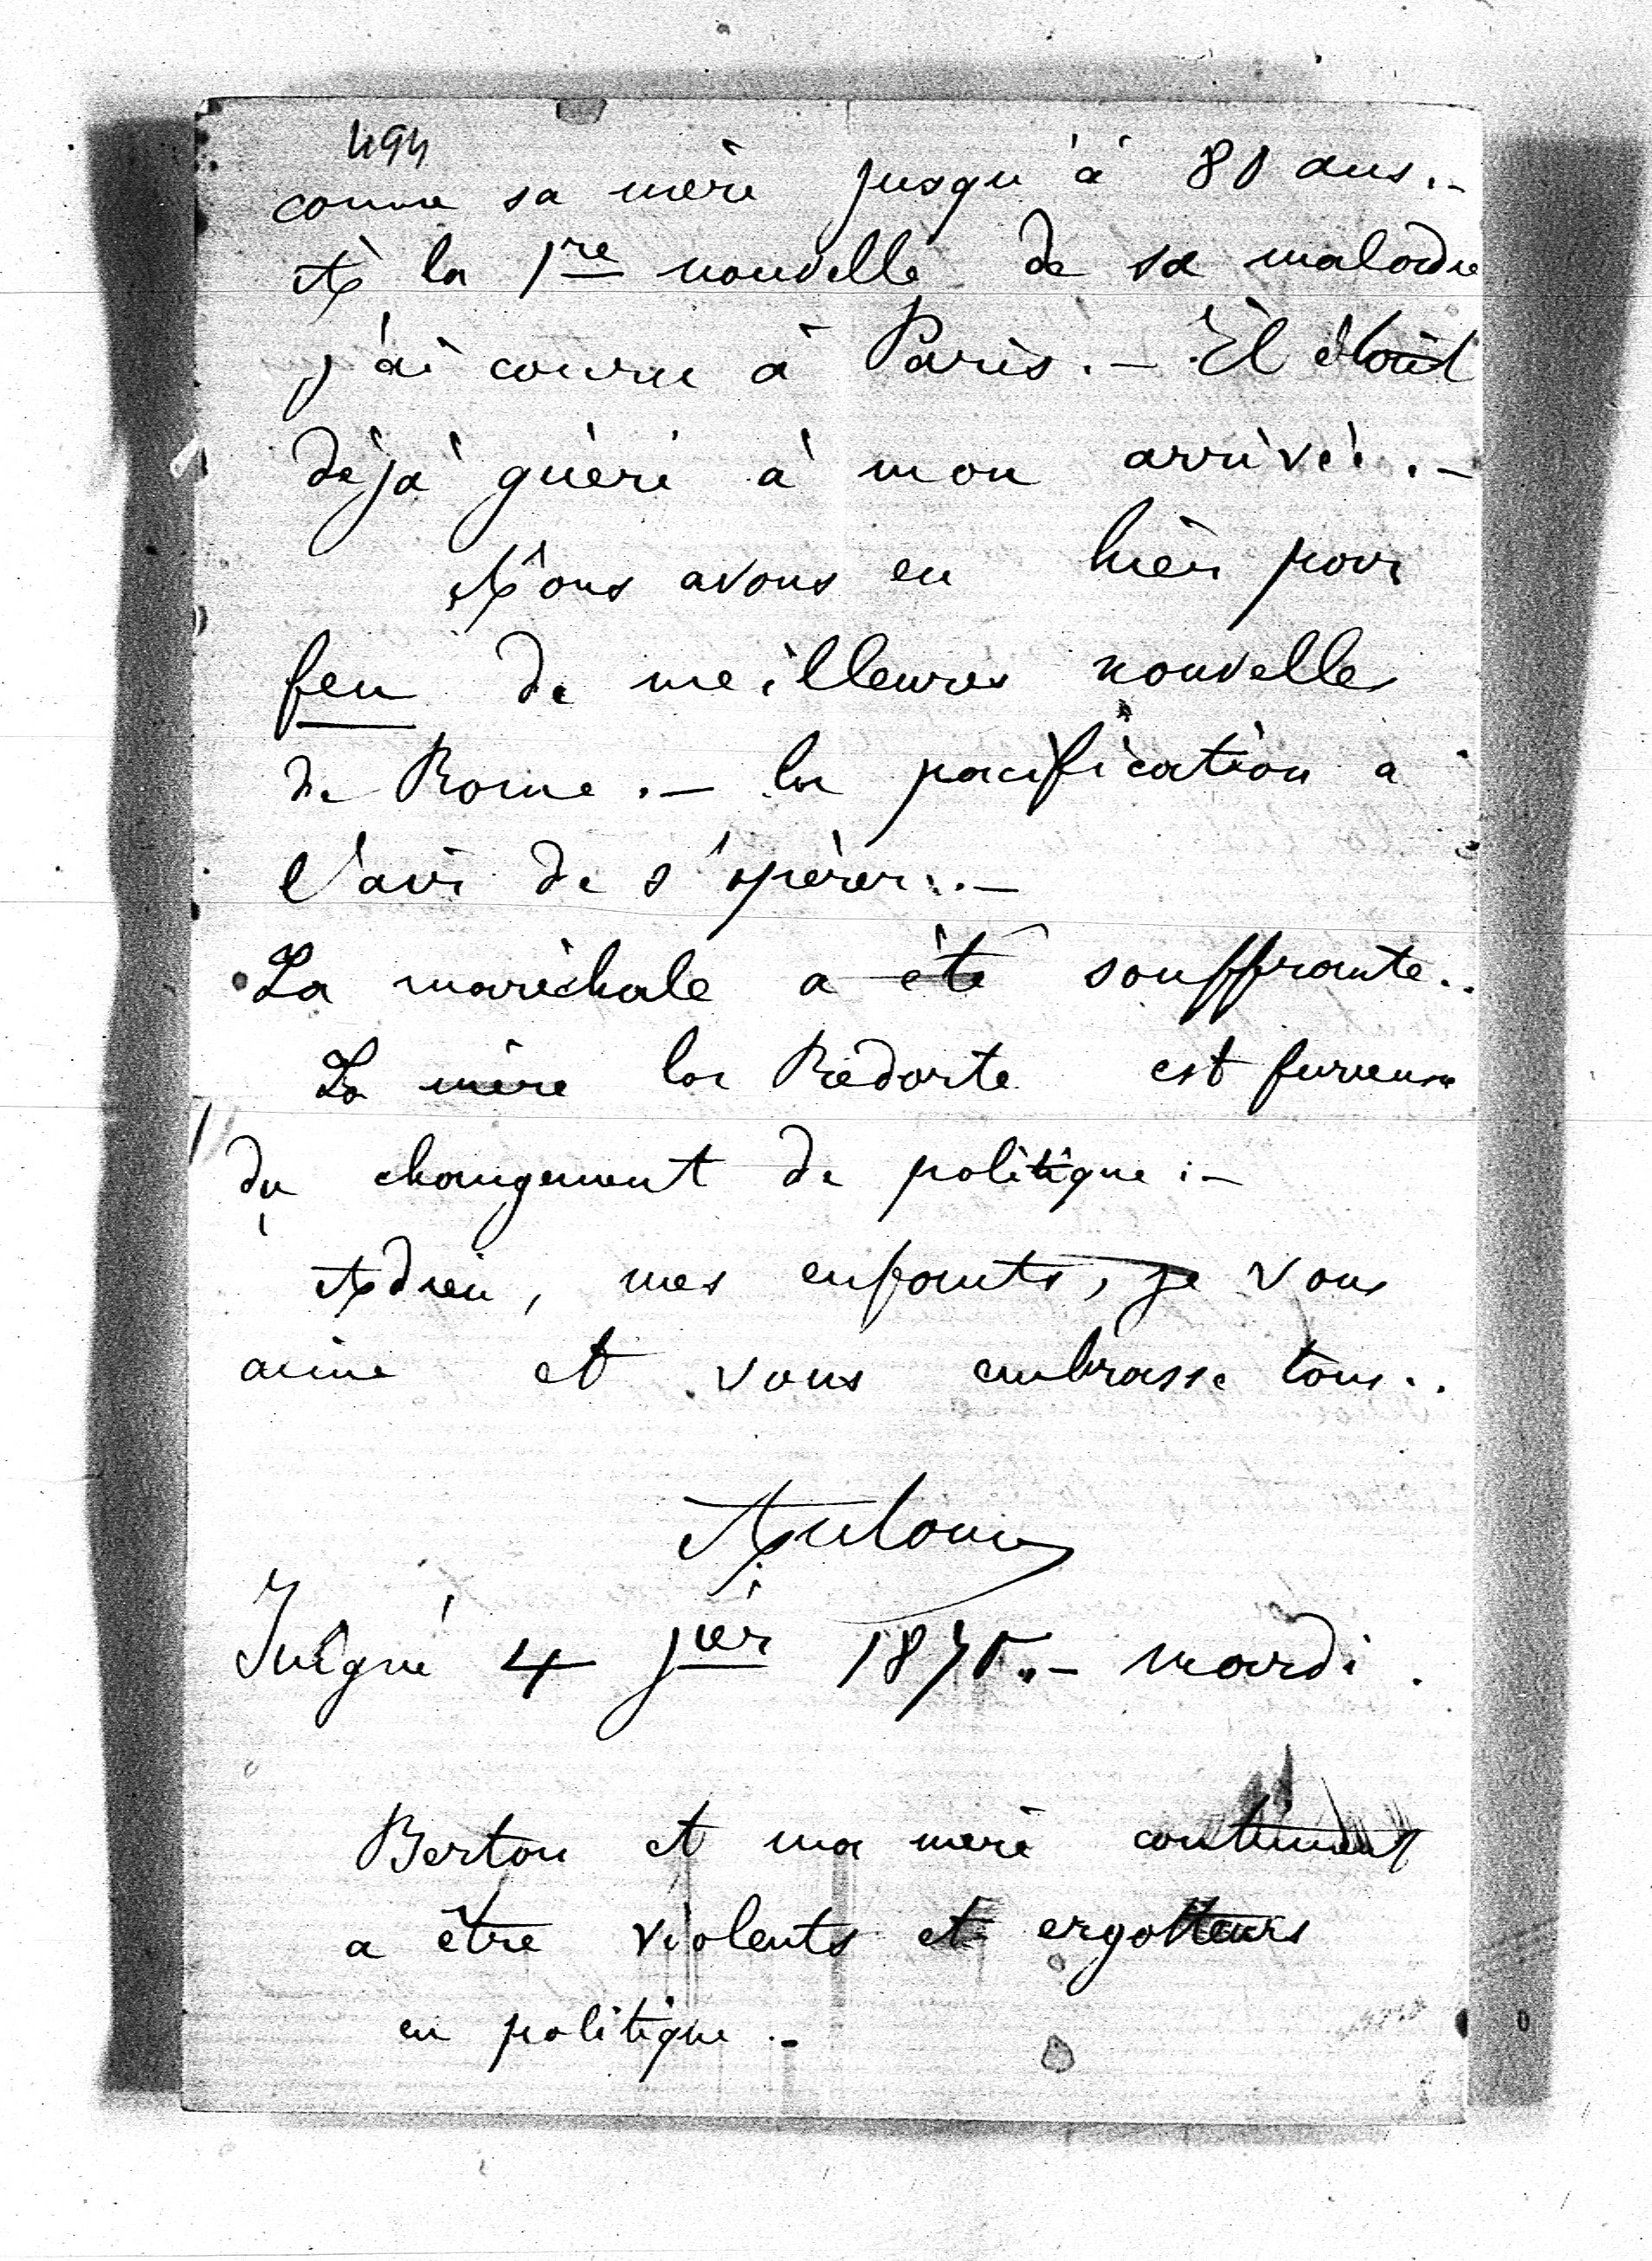 494
comme sa mère jusqu'à 80 ans.-
A la 1re nouvelle de sa maladie
j'ai couru à Paris.- Il étoit
déjà guéri à mon arrivée.-
Nous avons eu hier pour
feu de meilleures nouvelles
de Rome.- la pacification a
l'air de s'opérer.-
La maréchale a été souffrante..
La mère la Redorte est furieuse
du changement de politique.-
Adieu, mes enfants, je vous
aime et vous embrasse tous..
Antonin
Juigné 4 jer 1870.- mardi.
Berton et ma mère continuent
a être violents et ergotteurs
en politique.-